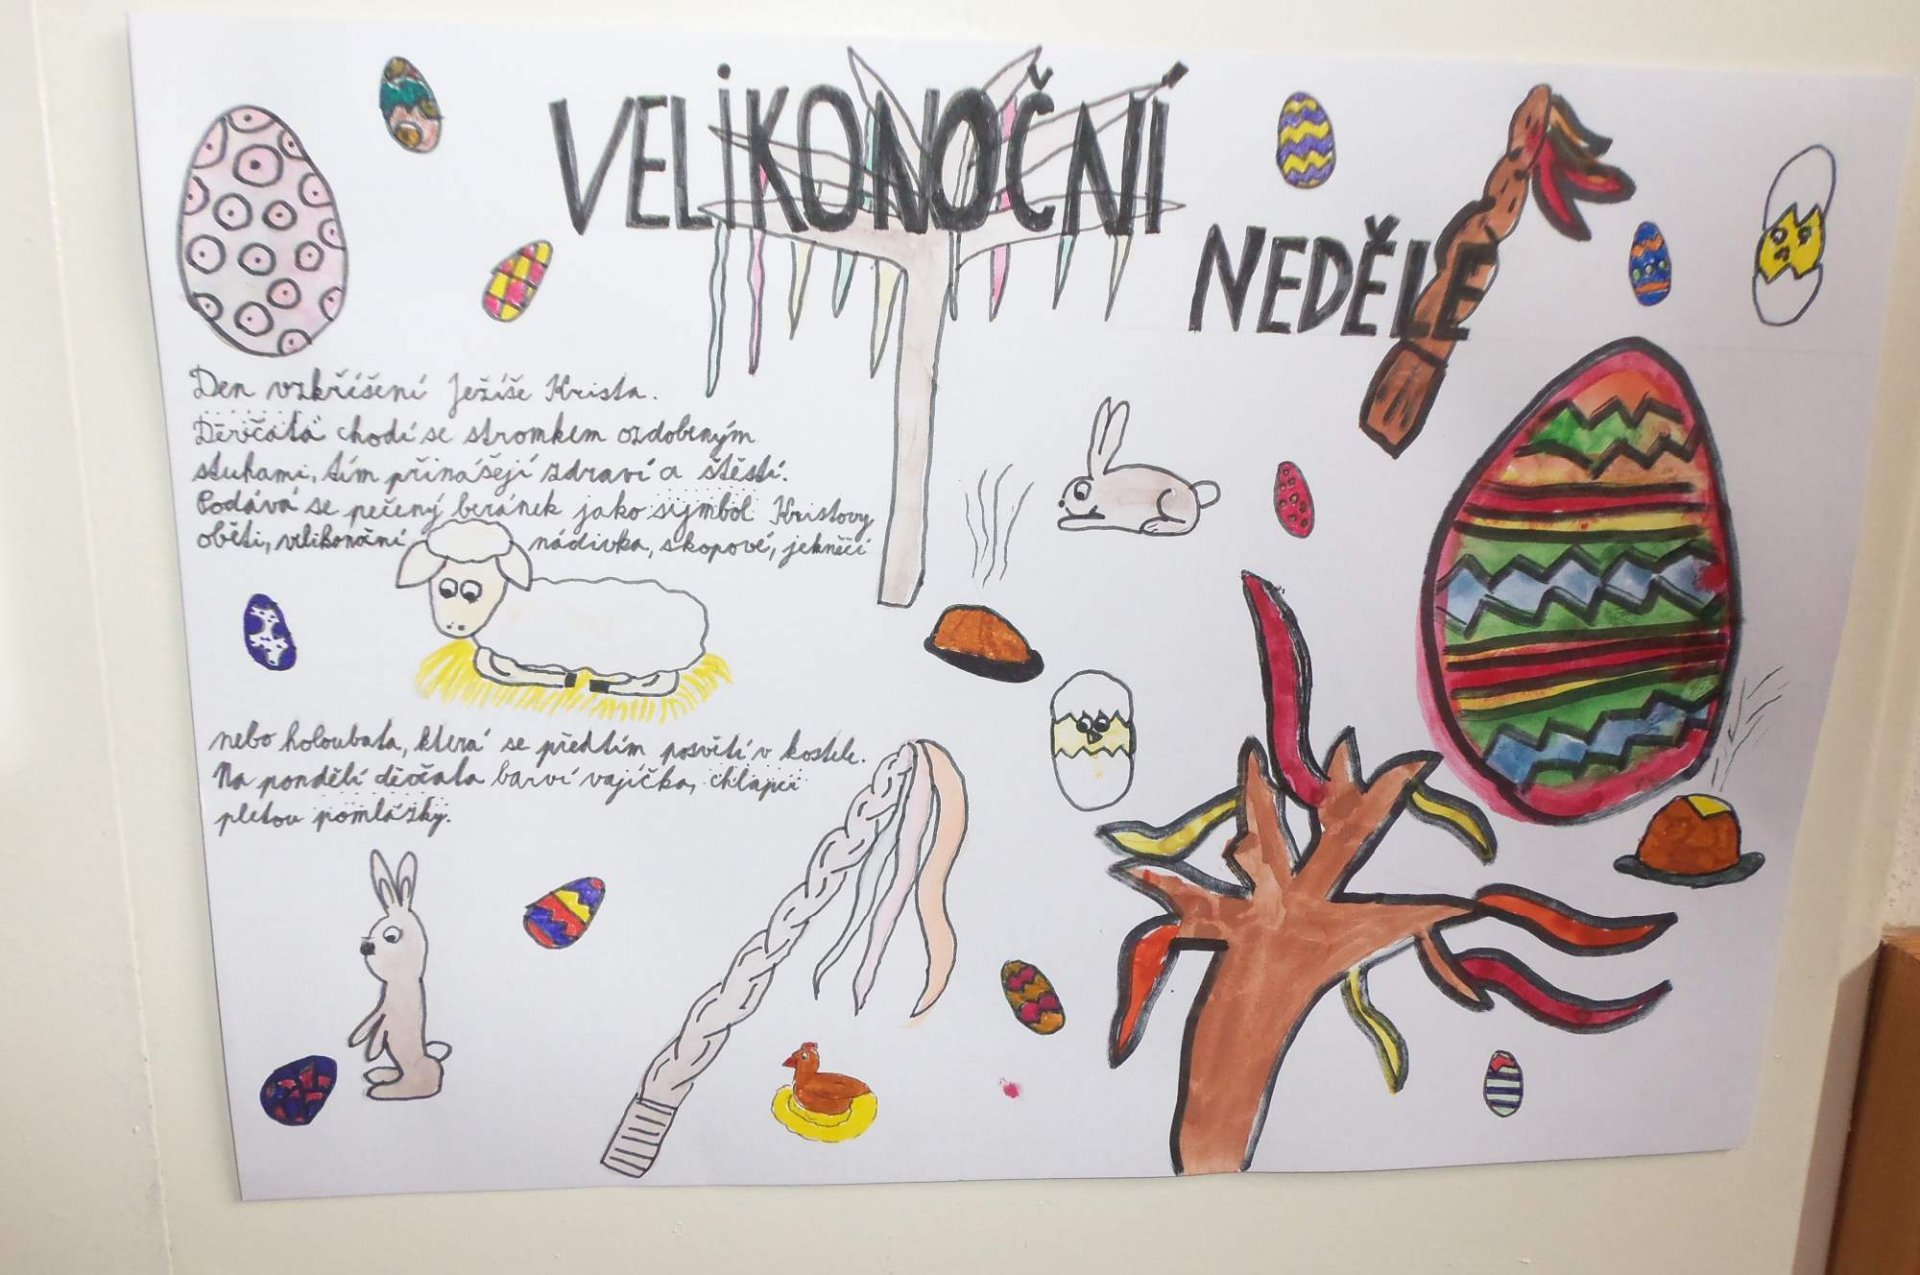 VELIKONOČNÍ
NEDĚLE
Den vzkříšení Ježíše Krista.
Děvčata chodí se stromkem ozdobeným
stuhami, tím přinášejí zdraví a štěstí.
Podává se pečený beránek jako symbol Kristovy
oběti, velikonoční nádivka, skopové, jehněčí
nebo holoubata, která se předtím posvětí v kostele.
Na pondělí děvčata barví vajíčka, chlapci
pletou pomlázky.